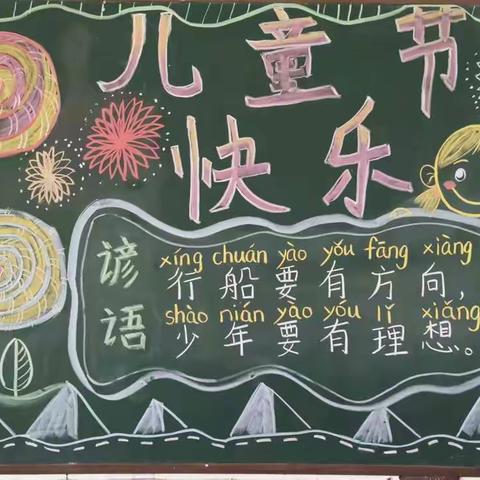 儿童节
快乐
谚语
xíng chuán yào yǒu fāng xiàng
行船要有方向，
shào nián yào yóu lǐ xiǎng
少年要有理想。